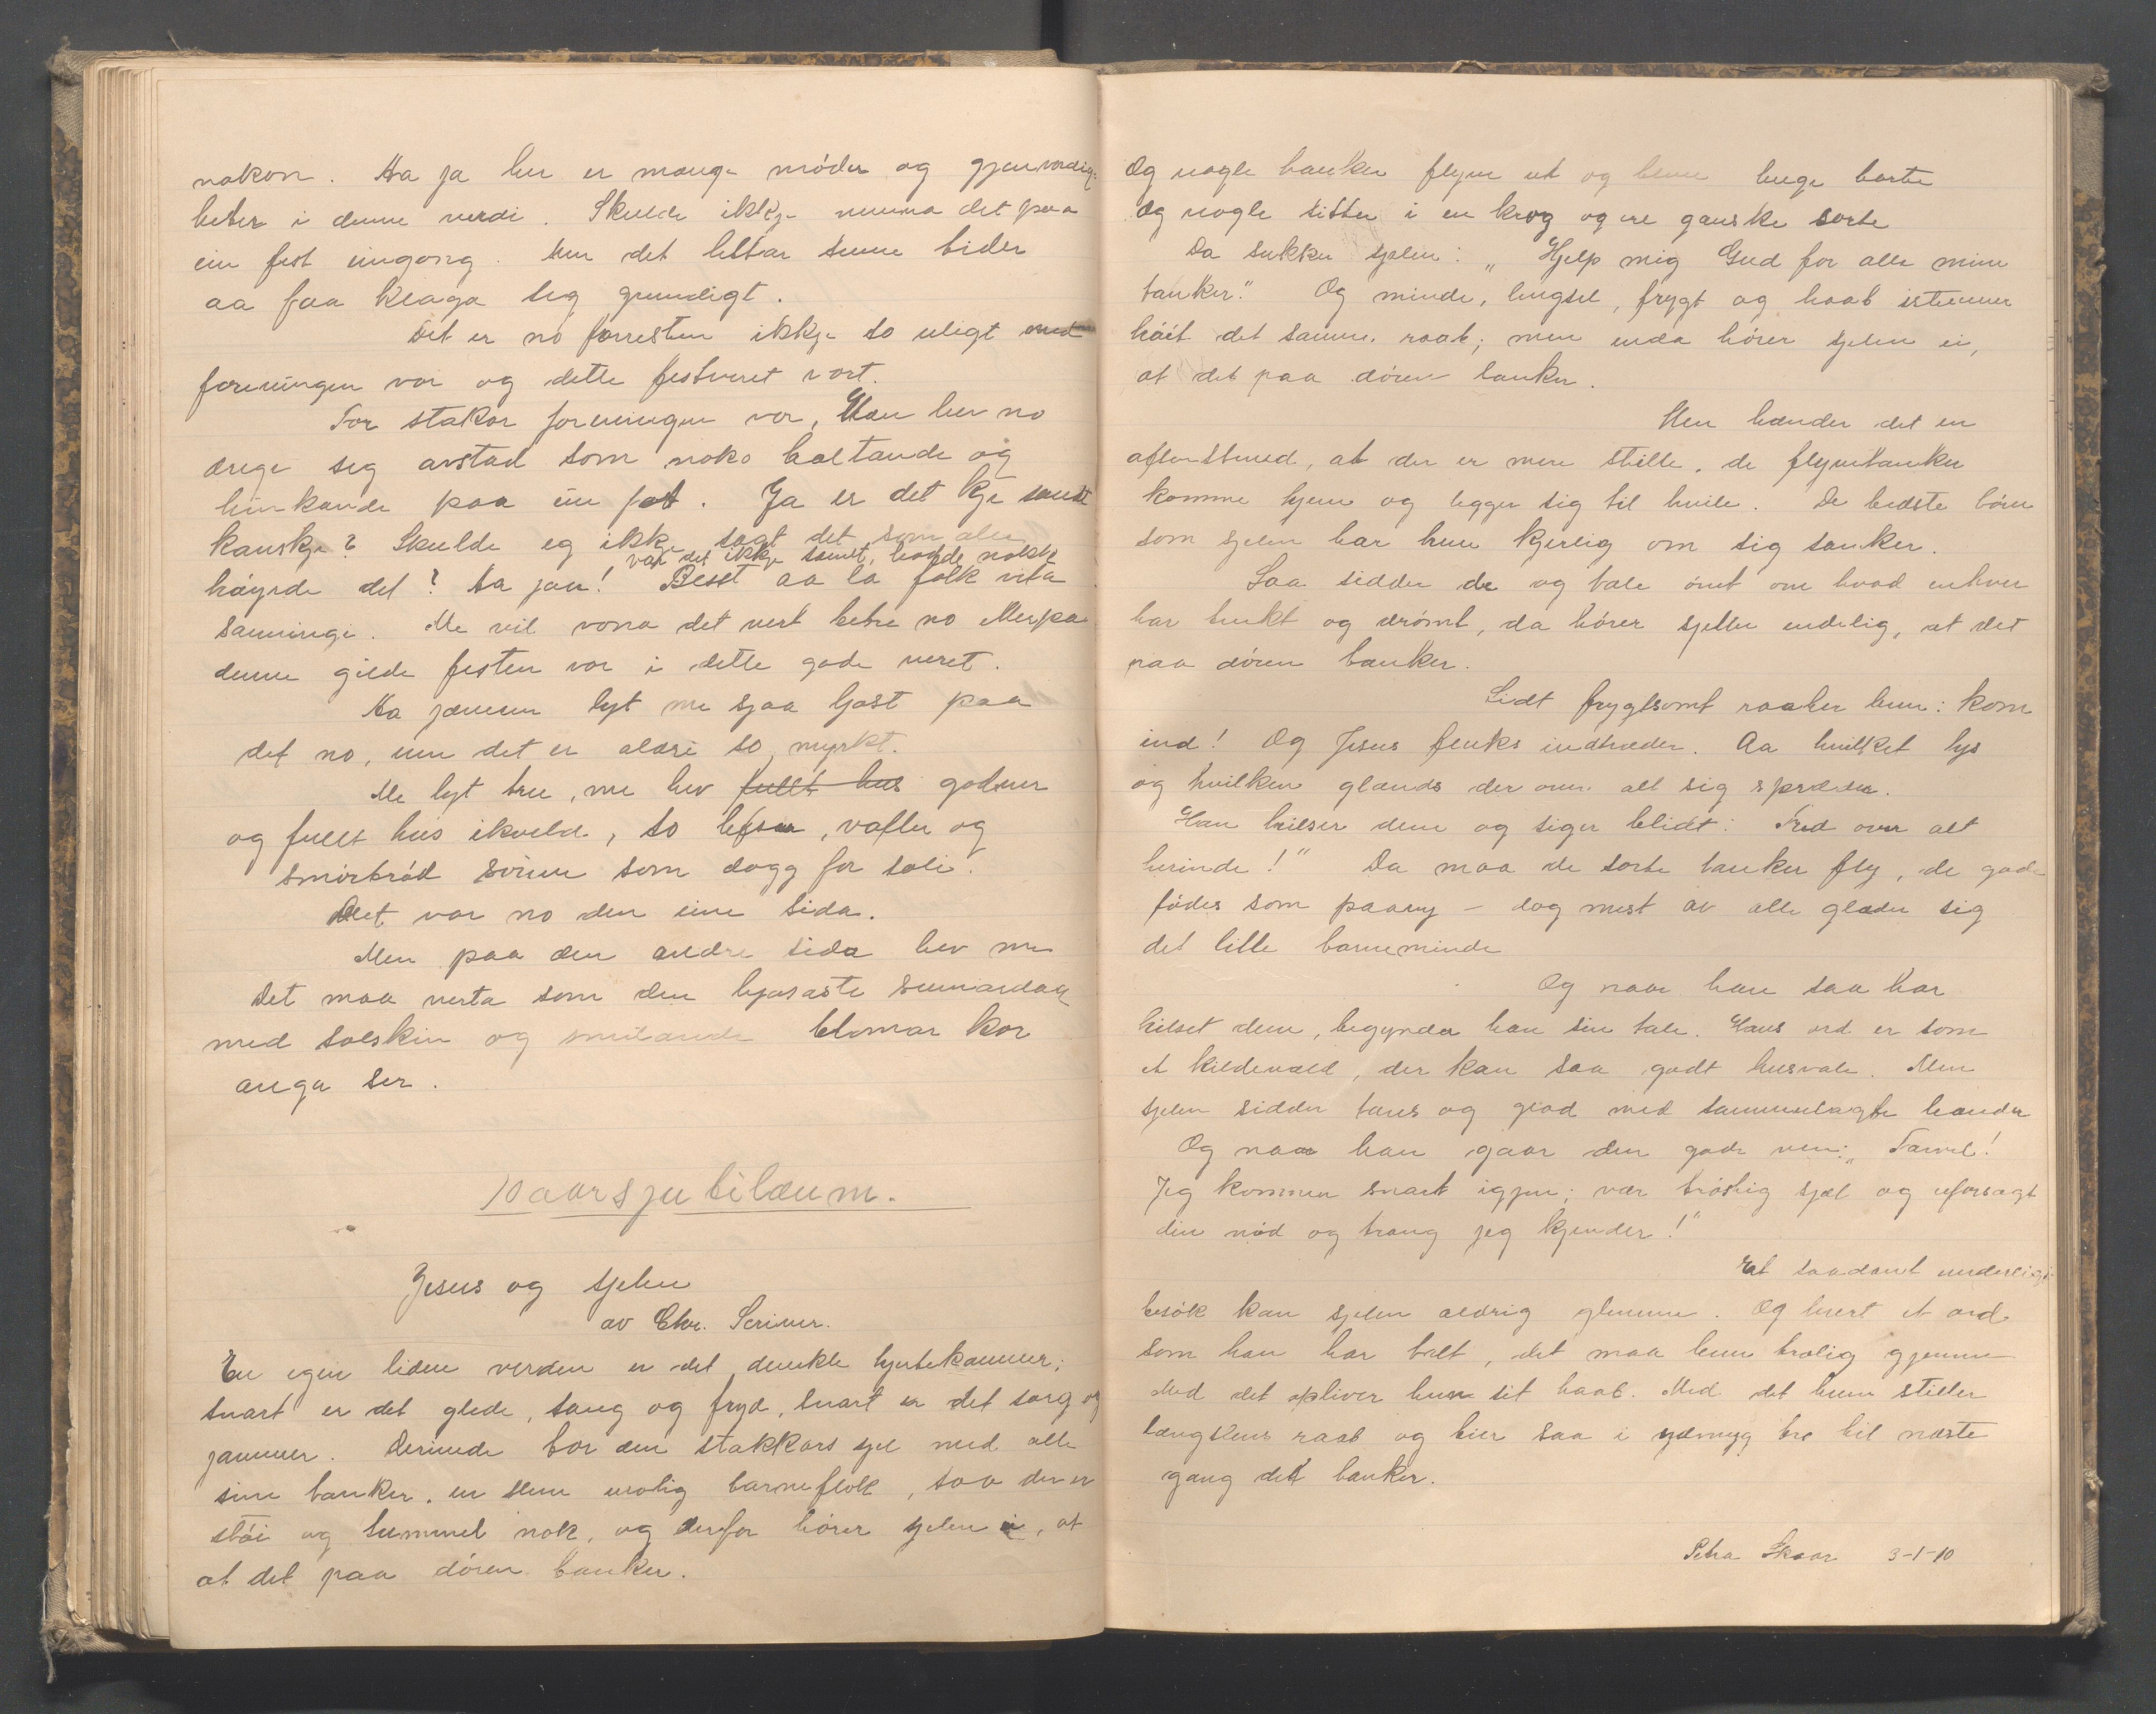 nokon. Aa ja her er mange möder og gjenvordig-
heter i denne verdi. Skulde ikkje munna det paa
ein fest eingong. Men det lettar sume tider
aa faa klaga seg grundigt.
Det er no forresten ikkje so uligt med
foreningen vor og dette festveret vort.
For stakar foreningen vor, Han hev no
drege seg avstad som noko haltande og
hinkande paa ein fot. Ja er det kje sandt
kanskje? Skulde eg ikkje sagt det som alle
var det ikkje samt, havde nokke
höyrde det? Aa jau! Best aa la folk vita
sanningi. Me vil vona det vert betre no etterpaa
denne gilde festen vor i dette gode veret.
Aa jammen lyt me sjaa ljost paa
det no, um det er aldri so myrkt.
Me lyt tru, me hev fullt hus godver
og fullt hus ikveld, so lefsa, vafler og
smörbröd svinn som dogg for soli.
Det var no den eine sida.
Men paa den andre sida hev me
det maa verta som den ljosaste sumardag
med solskin og smilande blomar kor
auga ser.
10aarsjubilæum.
Jesus og sjelen
av Chr. Scriver.
En egen liden verden er det dunkle hjertekammer;
snart er det glede, sang og fryd, snart er det sorg og
jammer. Derinde bor den stakkars sjel med alle
sine tanker, en slem urolig barneflok, saa der er
stöi og tummel nok, og derfor hörer sjelen ei, at
at det paa dören banker.
Og nogle tanker flyve ut og blive lenge borte
og nogle sitter i en krog og ere ganske sorte
Da sukker sjelen: „Hjelp mig Gud for alle mine
tanker." Og minde, lengsel, frygt og haab istemmer
höit det samme raab; men enda hörer sjelen ei,
at det paa dören banker.
Men hænder det en
aftenstund, at der er mere stille, de flyvetanker
komme hjem og legger sig til hvile. De bedste börn
som sjelen har hun kjerlig om sig sanker.
Saa sidder de og tale ömt om hvad enhver
har tenkt og drömt, da hörer sjelen endelig, at det
paa dören banker.
Lidt frygtsomt raaber hun: kom
ind! Og Jesus fluks indtræder. Aa hvilket lys
og hvilken glands der over alt sig spreder.
Han hilser dem og siger blidt: Fred over alt
herinde!" Da maa de sorte tanker fly, de gode
födes som paany – dog mest av alle glæder sig
det lille barneminde
Og naar han saa har
hilset dem, begynder han sin tale. Hans ord er som
et kildevæld, der kan saa godt husvale. Men
sjelen sidder taus og glad med sammenlagte hænder
Og naar han gaar den gode ven: „Farvel!
Jeg kommer snart igjen; vær tröstig sjel og uforsagt
din nöd og trang jeg kjender!"
Et saadant underligt
besök kan sjelen aldrig glemme. Og hvert et ord
som han har talt, det maa hun trolig gjemme
Med det opliver hun sit haab. Med det hun stiller
længslens raab og bier saa i ydmyg tro til næste
gang det banker.
Petra Skaar 3-1-10